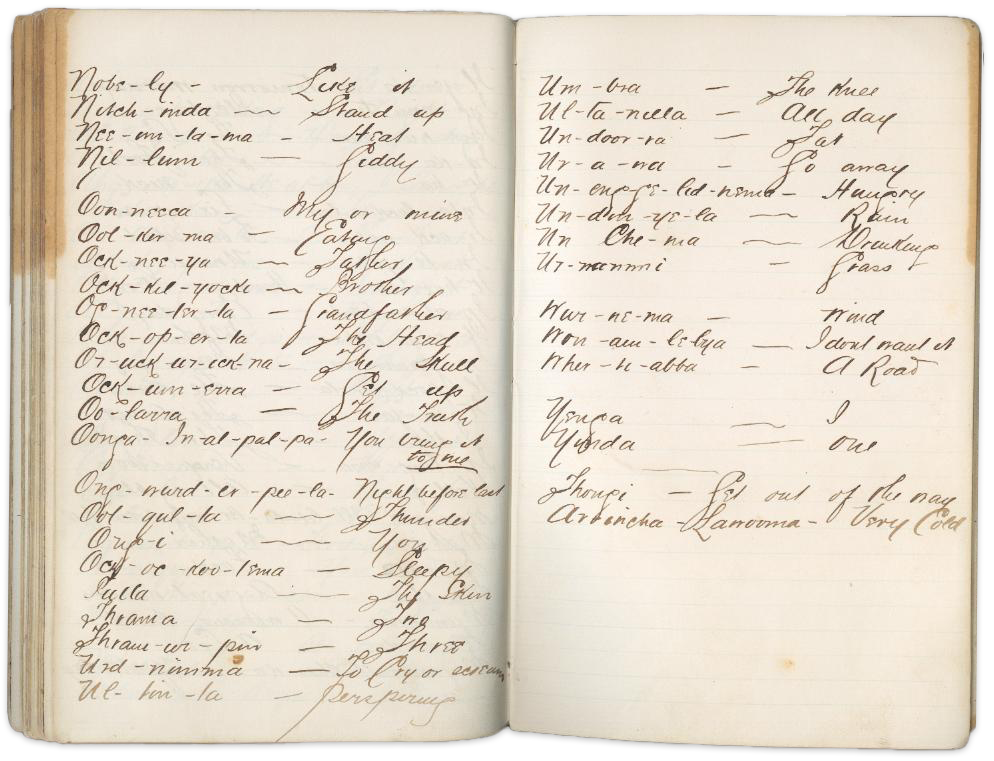 Nobe-ly - Like it
Nitch-inda — Stand up
Nee-im-la-ma - Heat
Nil-lum — Giddy
Oon-neeca - My or mine
Ool-ker ma - Eating
Ock-nee-ya — Father
Ock-kil-yocke — Brother
Oc-nee-ler-la - Grandfather
Ock-op-er-la — The Head
Or-uck-ur-ick-na - The Skull
Ock-um-erra — Get up
Oo-larra — The Truth
Oonga - In-al-pal-pa - You bring it
to me
Ong-wurd-er-pee-la - Night before last
Ool-gul-la — Thunder
Ong-i — You
Ock-oc-koo-lema — Sleepy
— The Skin
Thrama — Two
Thram-wi-pin — Three
Urd-nimma — To Cry or scream
Ul-lin-la - perspiring
Um-bra — The Knee
Ul-ta-nella — All day
Un-door-ra — Fat
Ur-a-na - Go away
Un-eng-ge-lid-nema - Hungry
Un-don-ye-la — Rain
Un Che-ma — Drinking
- Grass
Wur-ne-ma — Wind
Won-am-lebya — I dont want it
Wher-ti-abba — A Road
Yenga — I
Yinda — one
Thongi — Get out of the way
Arrincha-Larrooma - Very Cold